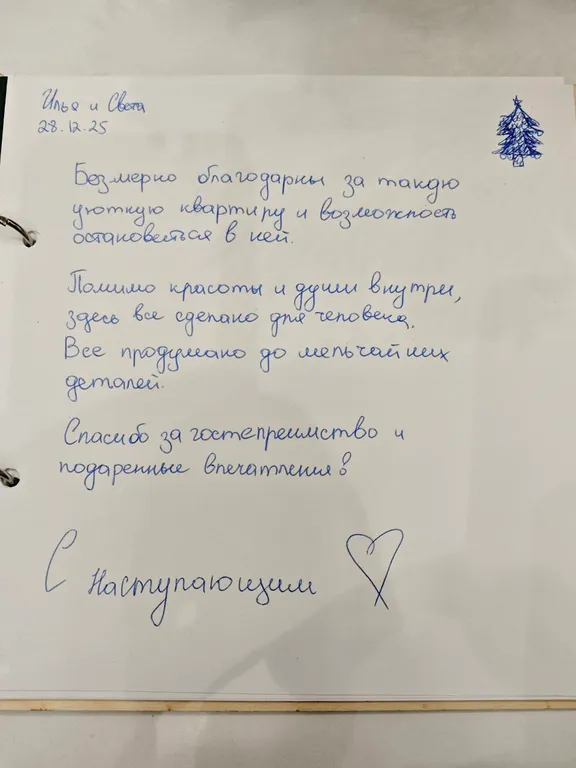 Илья и Света
28.12.25
Безмерно благодарны за такую
уютную квартиру и возможность
остановиться в ней.
Помимо красоты и души внутри,
здесь все сделано для человека.
Все продумано до мельчайших
деталей.
Спасибо за гостеприимство и
подаренные впечатления!
С наступающим